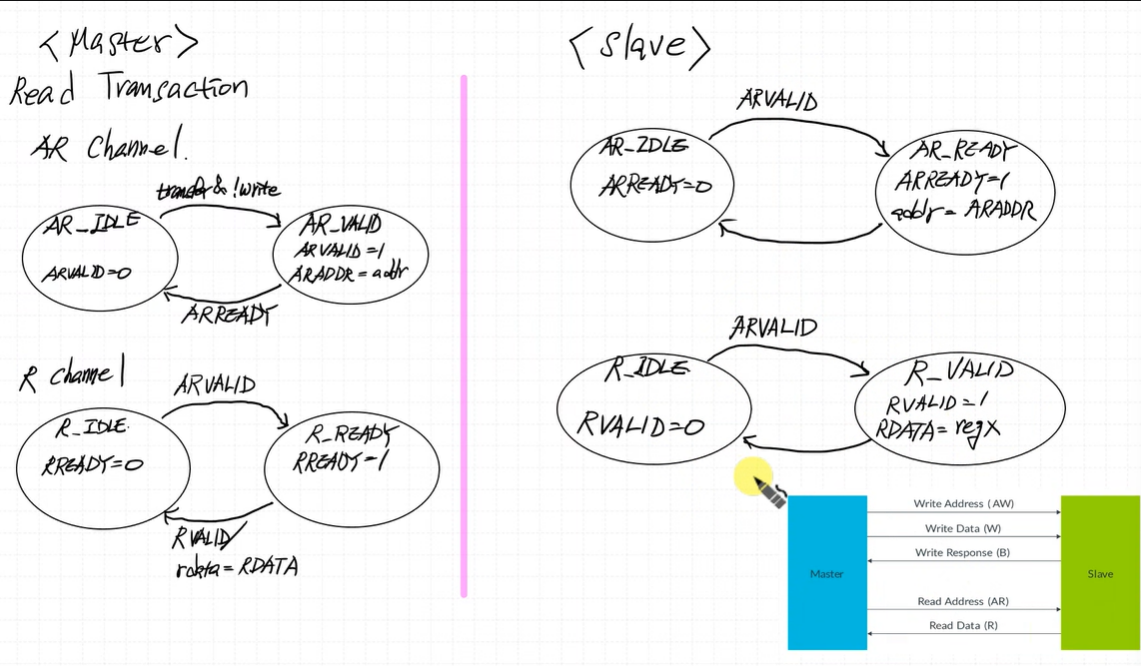 <Master>
Read Transaction
AR Channel.
transfer & !write
AR_IDLE
ARVALID=0
AR_VALID
ARVALID=1
ARADDR = addr
ARREADY
R channel
ARVALID
R_IDLE.
RREADY=0
R_READY
RREADY=1
RVALID/
rdata = RDATA
<slave>
ARVALID
AR_IDLE
ARREADY=0
AR_READY
ARREADY=1
addr = ARADDR
ARVALID
R_IDLE
RVALID=0
R_VALID
RVALID=1
RDATA= regX
Master
Write Address (AW)
Write Data (W)
Write Response (B)
Read Address (AR)
Read Data (R)
Slave